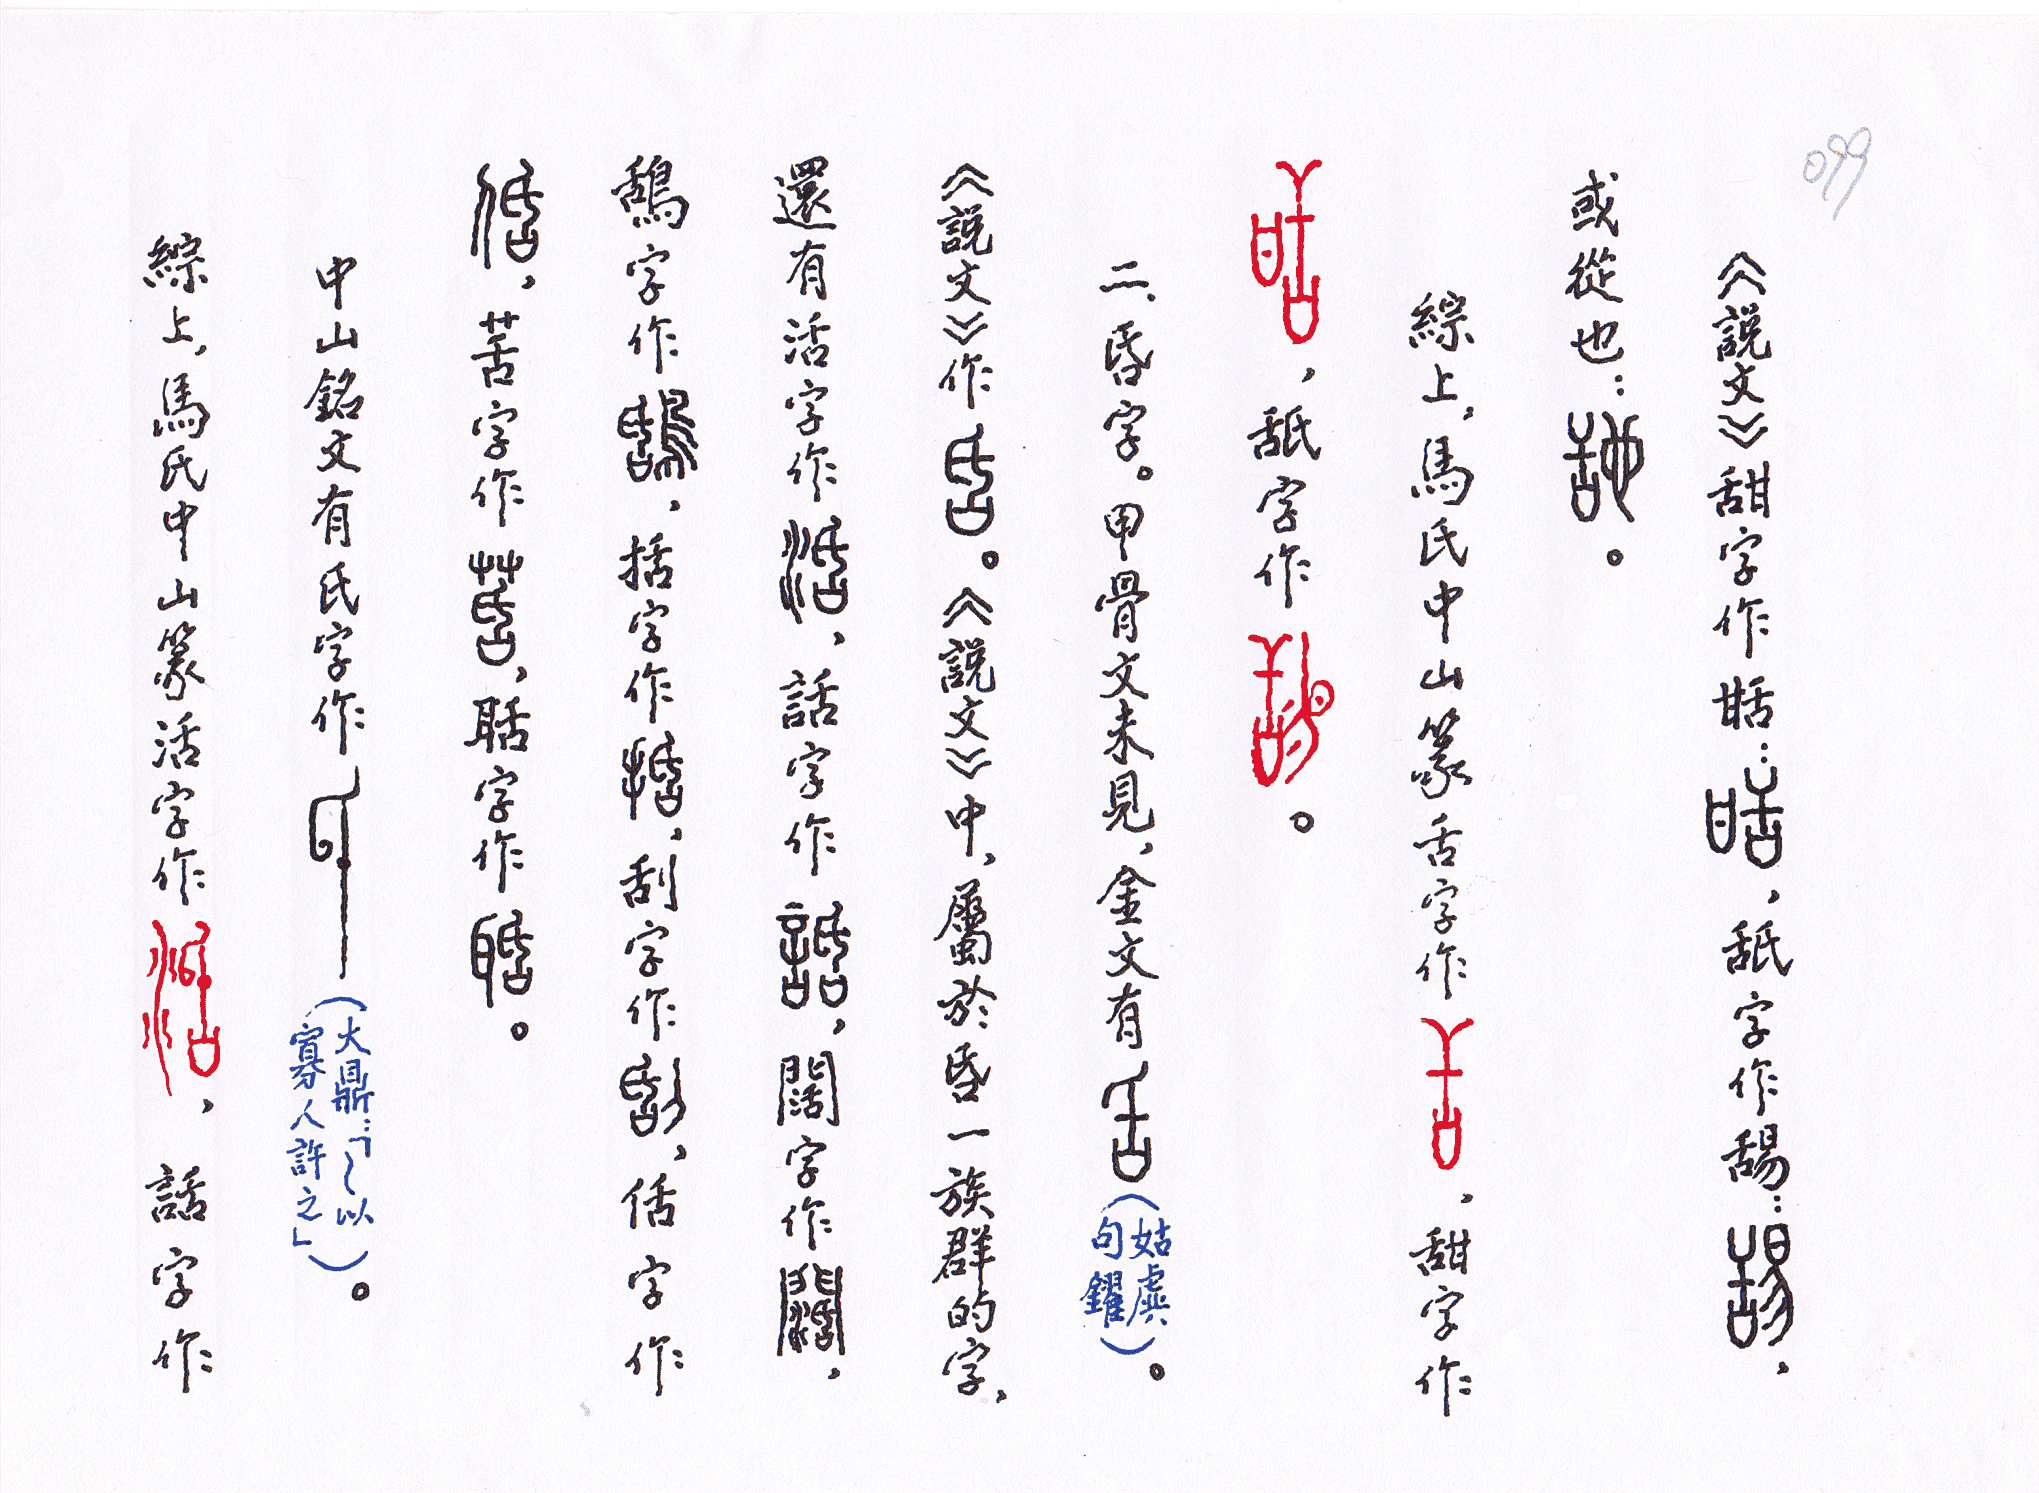 099
《説文》甜字作甛：，舐字作舓：，
或從也：。
綜上，馬氏中山篆舌字作，甜字作
，舐字作。
二、昏字。甲骨文未見，金文有（姑虞句鑃）。
《説文》作。《説文》中，屬於昏一族群的字，
還有活字作，話字作，闊字作，
鴰字作，括字作，刮字作，佸字作
，苦字作，聒字作。
中山銘文有氏字作（大鼎：「～以寡人許之」）。
綜上，馬氏中山篆活字作，話字作